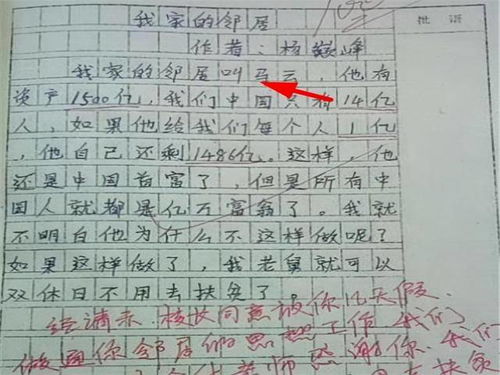 我家的邻居
批语
作者:杨巍峰
我家的邻居叫马云,他有
资产1500亿,我们中国只有14亿
人,如果他给我们每个人1亿
,他自己还剩1486亿。这样,他
还是中国首富了,但是所有中
国人就都是亿万富翁了。我就
不明白他为什么不这样做呢?
如果这样做了,我老舅就可以
双休日不用去扶贫了
经请示.校长同意放你几天假.
做通你邻居的思想工作.我们
老师感谢你.我们
去扶贫